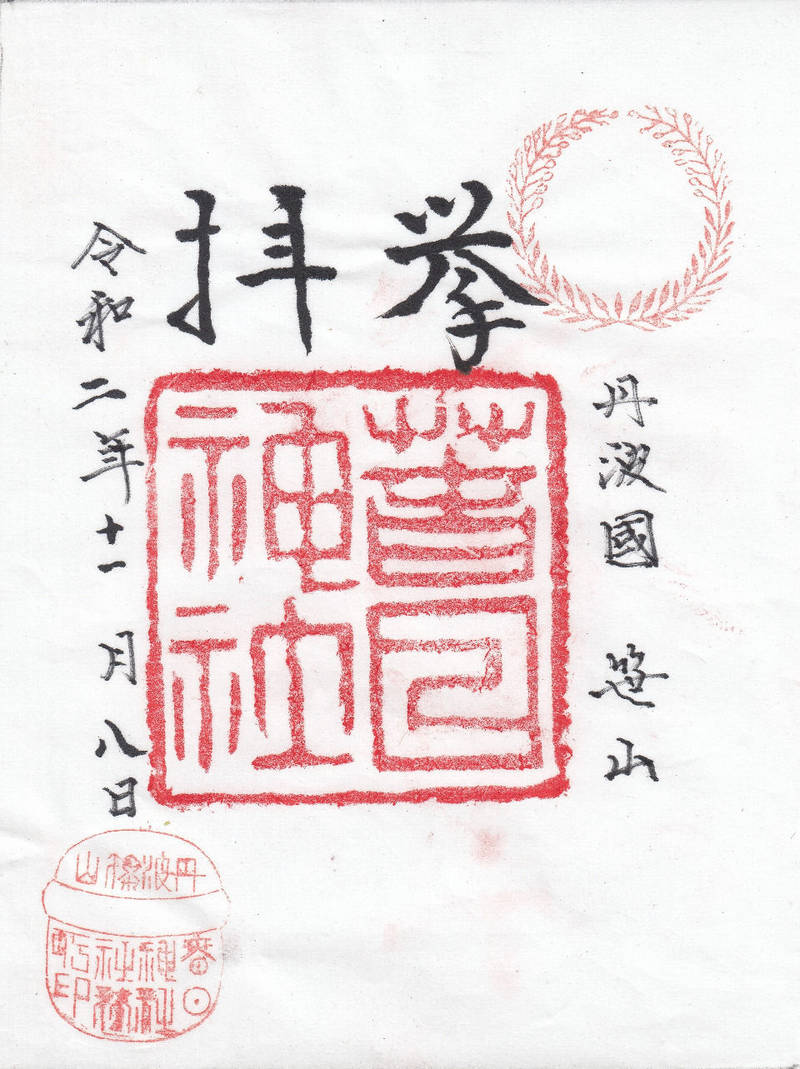 丹波國 笹山
奉拝
春日
神社
令和二年十一月八日
丹波篠山
春日
神社
社務
所印